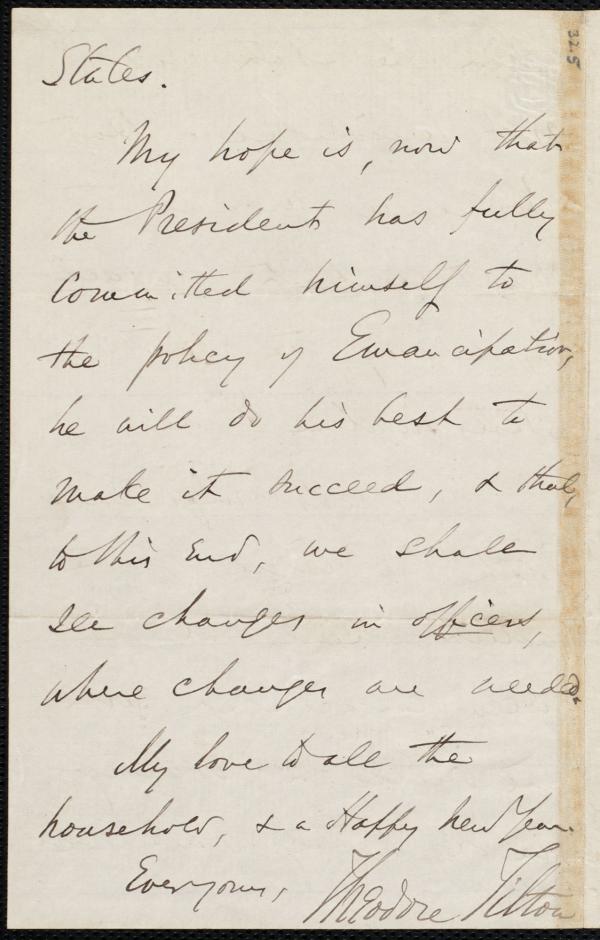 325
States.
My hope is, now that
the President has fully
committed himself to
the policy of Emancipation,
he will do his best to
make it succeed, & that,
to this end, we shall
see changes in officers,
where changes are needed.
My love to all the
household, & a Happy New Year.
Ever yours,
Theodore Tilton